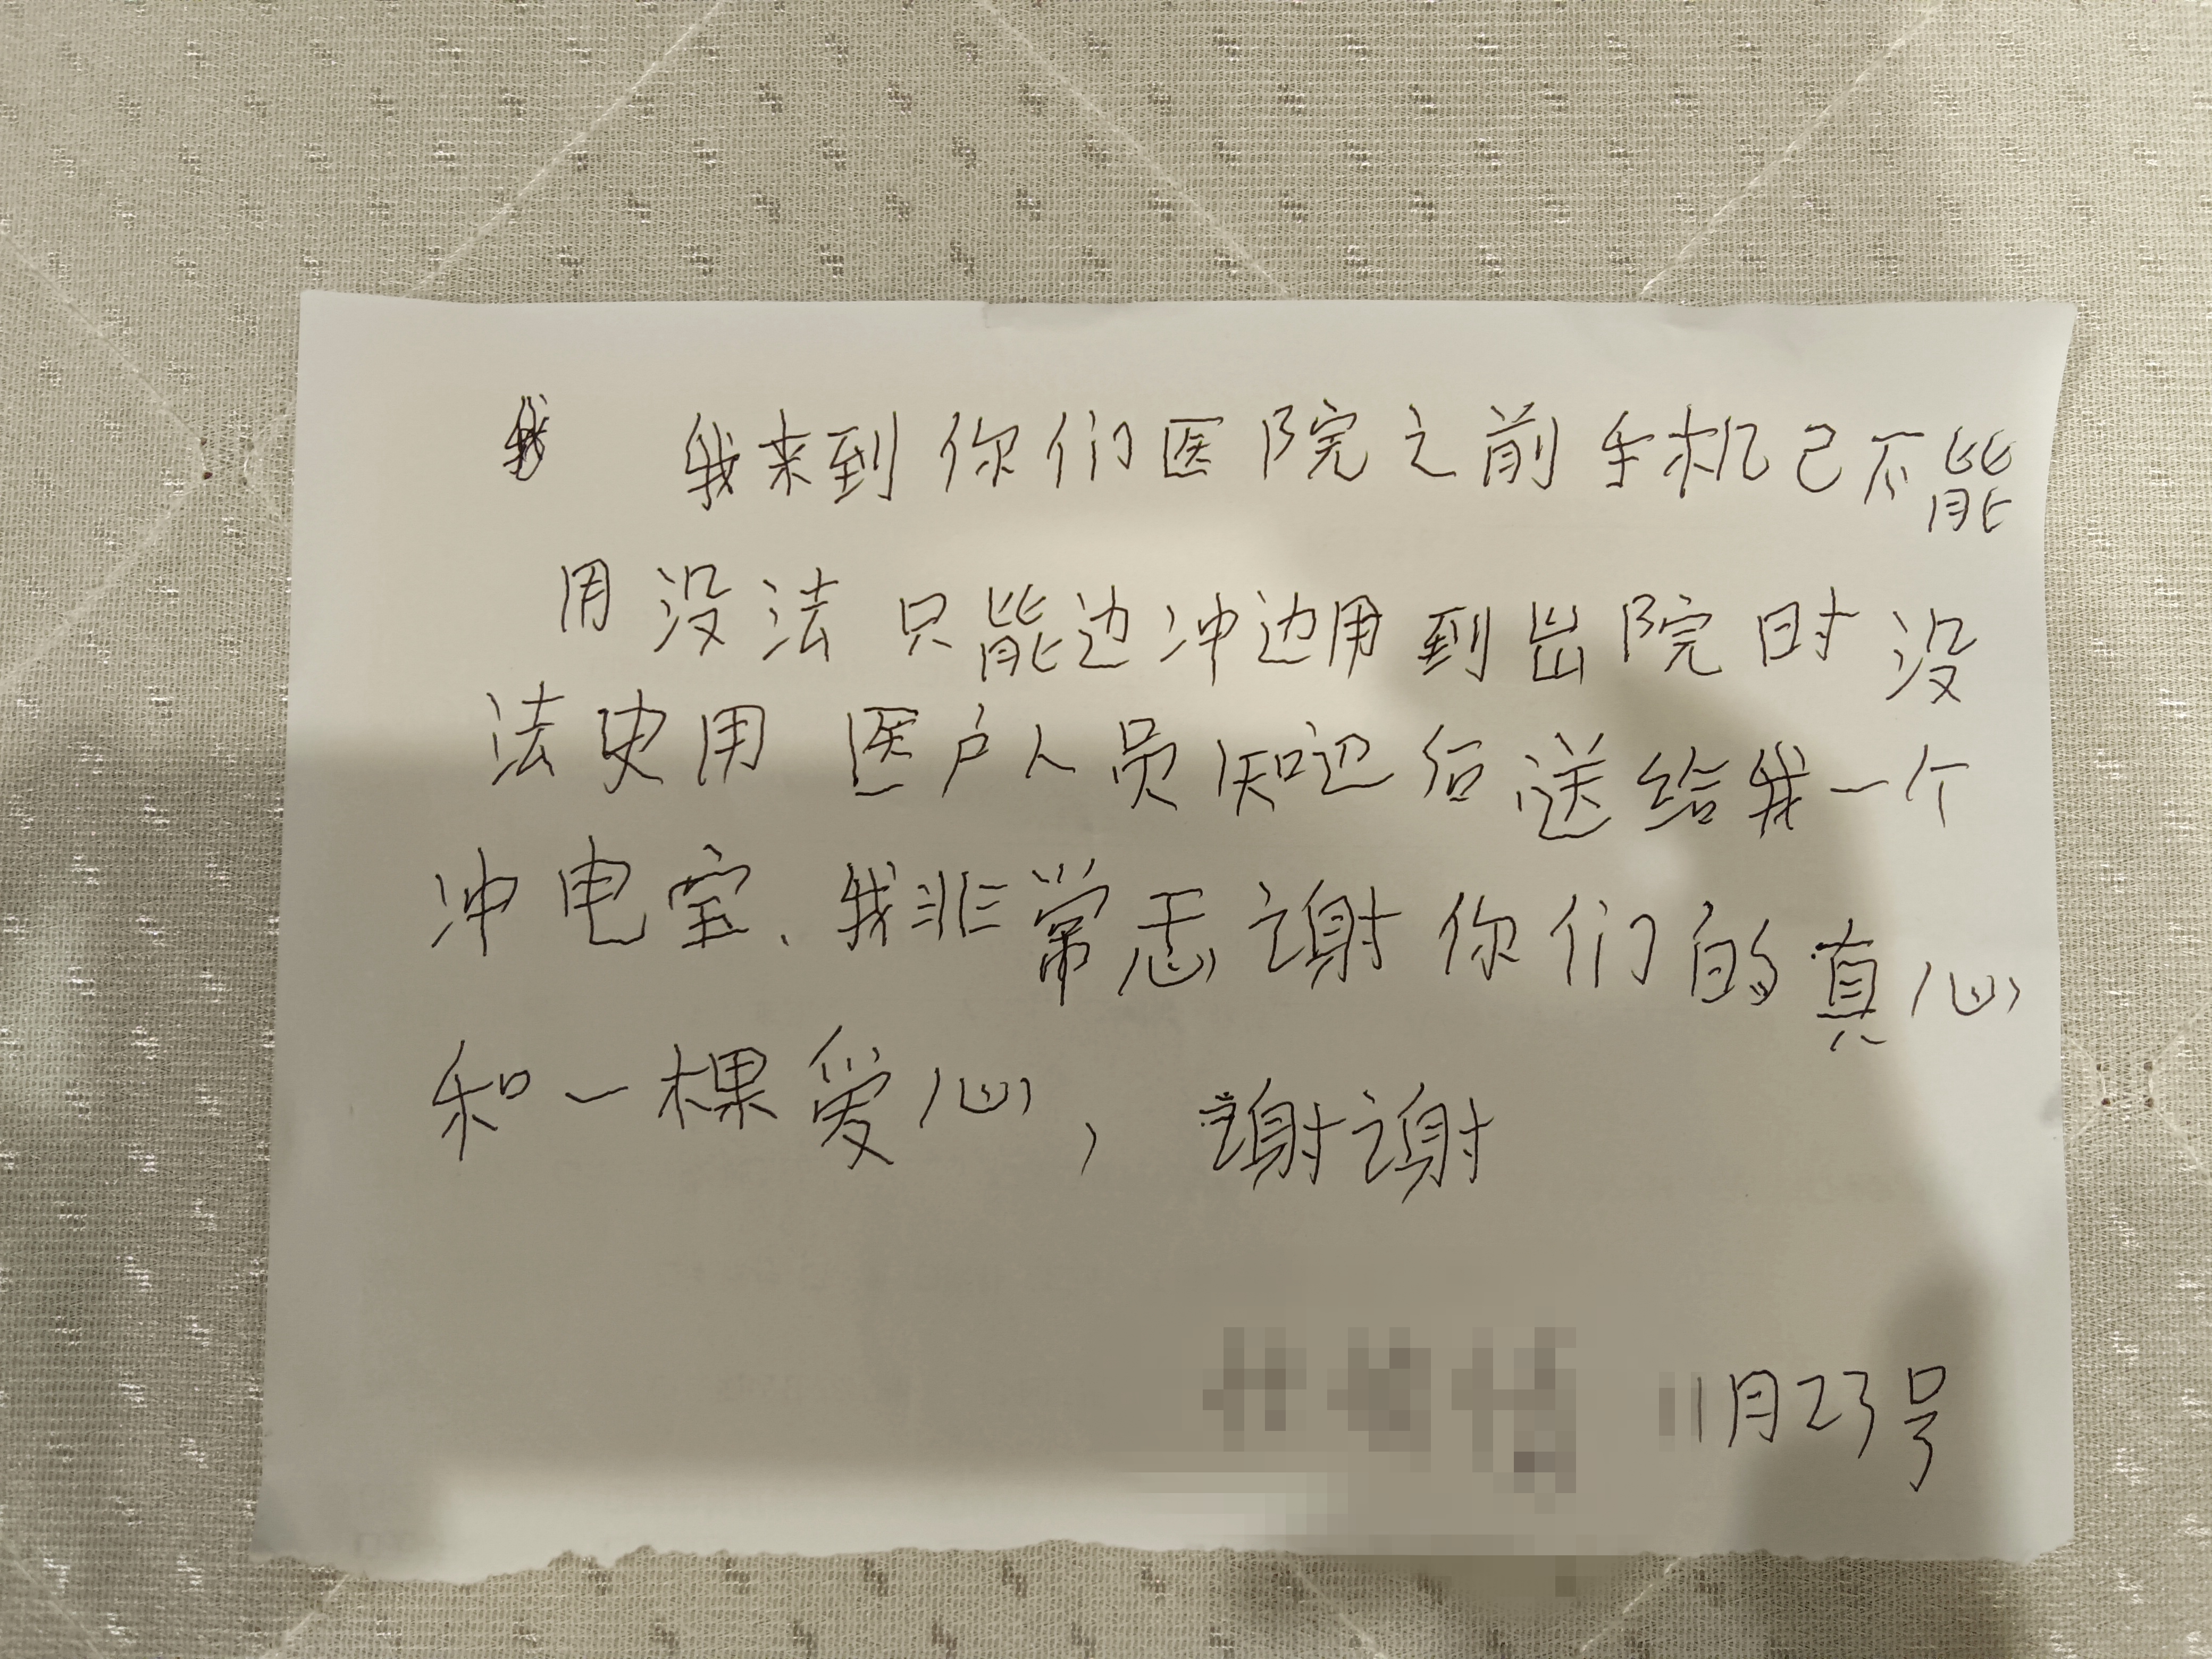 我来到你们医院之前手机己不能
用没法只能边冲边用到出院时没
法史用 医户人员知边后送给我一个
冲电宝、我非常忎谢你们的真心
和一棵爱心，谢谢
11月23号